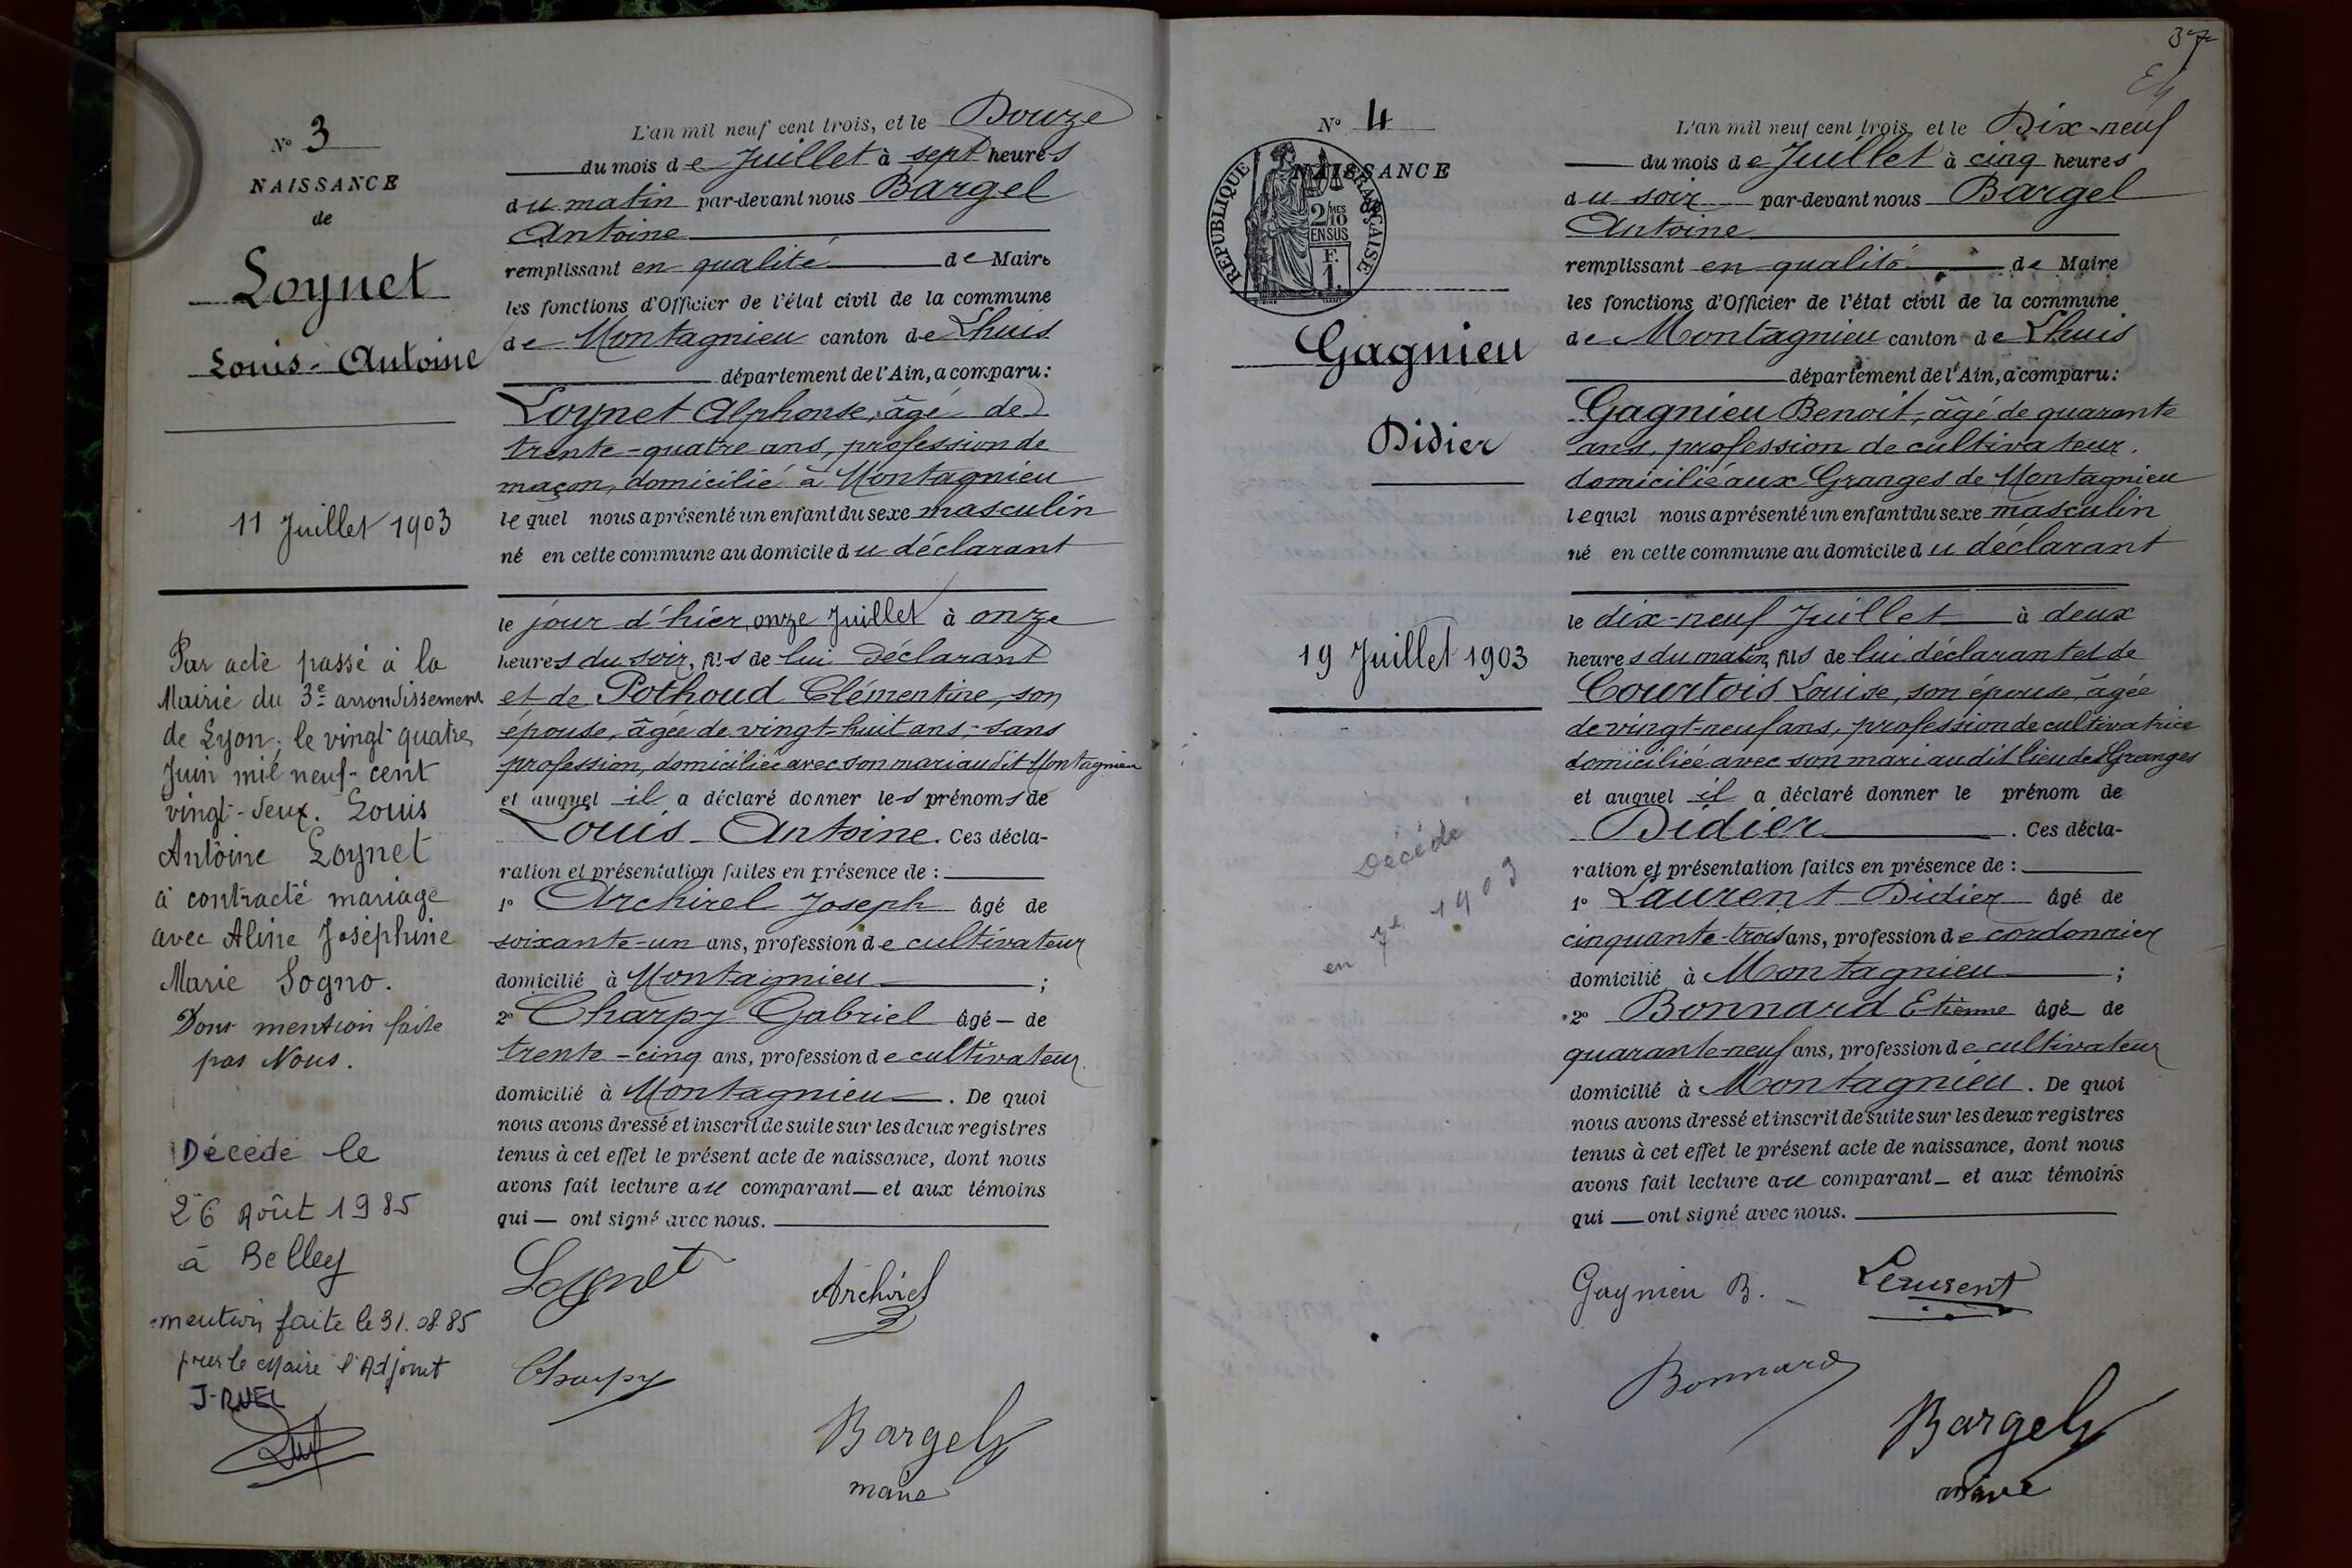 N° 3
NAISSANCE
de
Loynet
Louis-Antoine
11 Juillet 1903
Par acte passé à la
Mairie du 3e arrondissement
de Lyon, le vingt-quatre
Juin mil neuf-cent
vingt-deux. Louis
Antoine Loynet
a contracté mariage
avec Aline Joséphine
Marie Sogno.
Dont mention faite
par Nous.
Décédé le
26 Août 1985
à Belley
mention faite le 31.08.85
pour le Maire l'Adjoint
J-RUEL
L'an mil neuf cent trois, et le Douze
du mois de Juillet à sept heures
du matin par-devant nous Bargel
Antoine
remplissant en qualité de Maire
les fonctions d'Officier de l'état civil de la commune
de Montagnieu canton de Lhuis
département de l'Ain, a comparu:
Loynet Alphonse, âgé de
trente-quatre ans, profession de
maçon, domicilié à Montagnieu
lequel nous a présenté un enfant du sexe masculin
né en cette commune au domicile du déclarant
le jour d'hier, onze Juillet à onze
heures du soir, fils de lui déclarant
et de Pothoud Clémentine, son
épouse, âgée de vingt-huit ans, sans
profession, domiciliée avec son mari audit Montagnieu
et auquel il a déclaré donner les prénoms de
Louis-Antoine. Ces décla-
ration et présentation faites en présence de :
1° Archirel Joseph âgé de
soixante-un ans, profession de cultivateur
domicilié à Montagnieu ;
2° Charpy Gabriel âgé de
trente-cinq ans, profession de cultivateur
domicilié à Montagnieu. De quoi
nous avons dressé et inscrit de suite sur les deux registres
tenus à cet effet le présent acte de naissance, dont nous
avons fait lecture au comparant et aux témoins
qui ont signé avec nous.
Loynet
Archirel
Charpy
Bargel
maire
37
N° 4
NAISSANCE
de
REPUBLIQUE FRANÇAISE
2/10 MES
EN SUS
F.
1.
Gagnieu
Didier
19 Juillet 1903
Décédé
en 7re 1903
L'an mil neuf cent trois, et le Dix-neuf
du mois de Juillet à cinq heures
du soir par-devant nous Bargel
Antoine
remplissant en qualité de Maire
les fonctions d'Officier de l'état civil de la commune
de Montagnieu canton de Lhuis
département de l'Ain, a comparu:
Gagnieu Benoit, âgé de quarante
ans, profession de cultivateur,
domicilié aux Granges de Montagnieu
lequel nous a présenté un enfant du sexe masculin
né en cette commune au domicile du déclarant
le dix-neuf Juillet à deux
heures du matin, fils de lui déclarant et de
Courtois Louise, son épouse, âgée
de vingt-neuf ans, profession de cultivatrice
domiciliée avec son mari audit lieu des Granges
et auquel il a déclaré donner le prénom de
Didier. Ces décla-
ration et présentation faites en présence de :
1° Laurent Didier âgé de
cinquante-trois ans, profession de cordonnier
domicilié à Montagnieu ;
2° Bonnard Etienne âgé de
quarante-neuf ans, profession de cultivateur
domicilié à Montagnieu. De quoi
nous avons dressé et inscrit de suite sur les deux registres
tenus à cet effet le présent acte de naissance, dont nous
avons fait lecture au comparant et aux témoins
qui ont signé avec nous.
Gagnieu B. Laurent
Bonnard
Bargel
maire